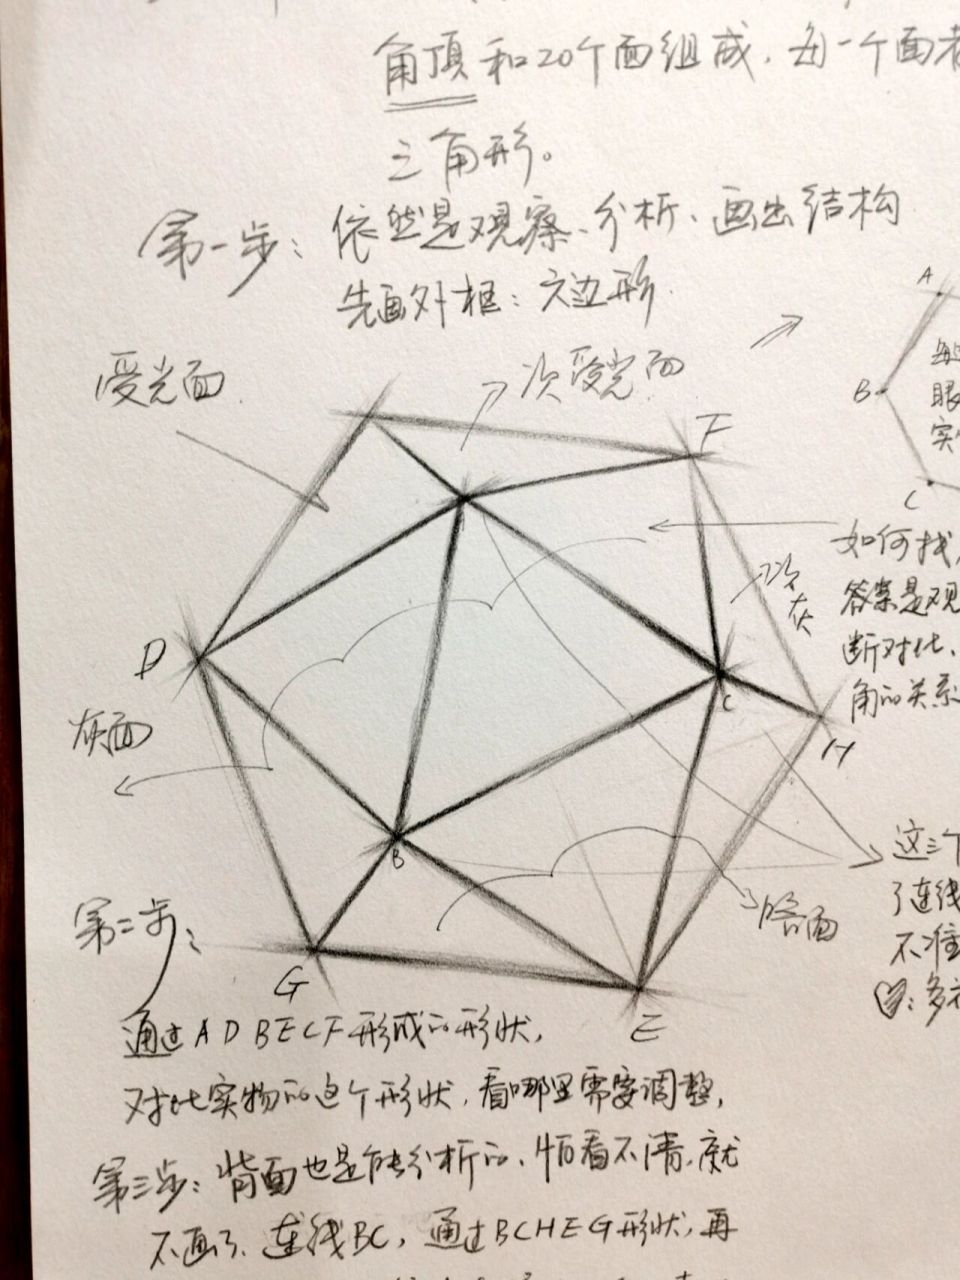 角顶和20个面组成.每一个面者
三角形。
第一步:依然是观察、分析、画出结构
先画外框:六边形.
受光面
次受光面
A
B
C
F
如何找,
答案是观
断对比、
角的关系
D
灰面
C
H
B
这三个
了连线
不准
:多
暗面
第二步:
G
E
通过ADBECF形成的形状,
对比实物的这个形状,看哪里需要调整,
第三步:背面也是能分析的、怕看不清,就
不画了、连线BC,通过BCHEG形状,再